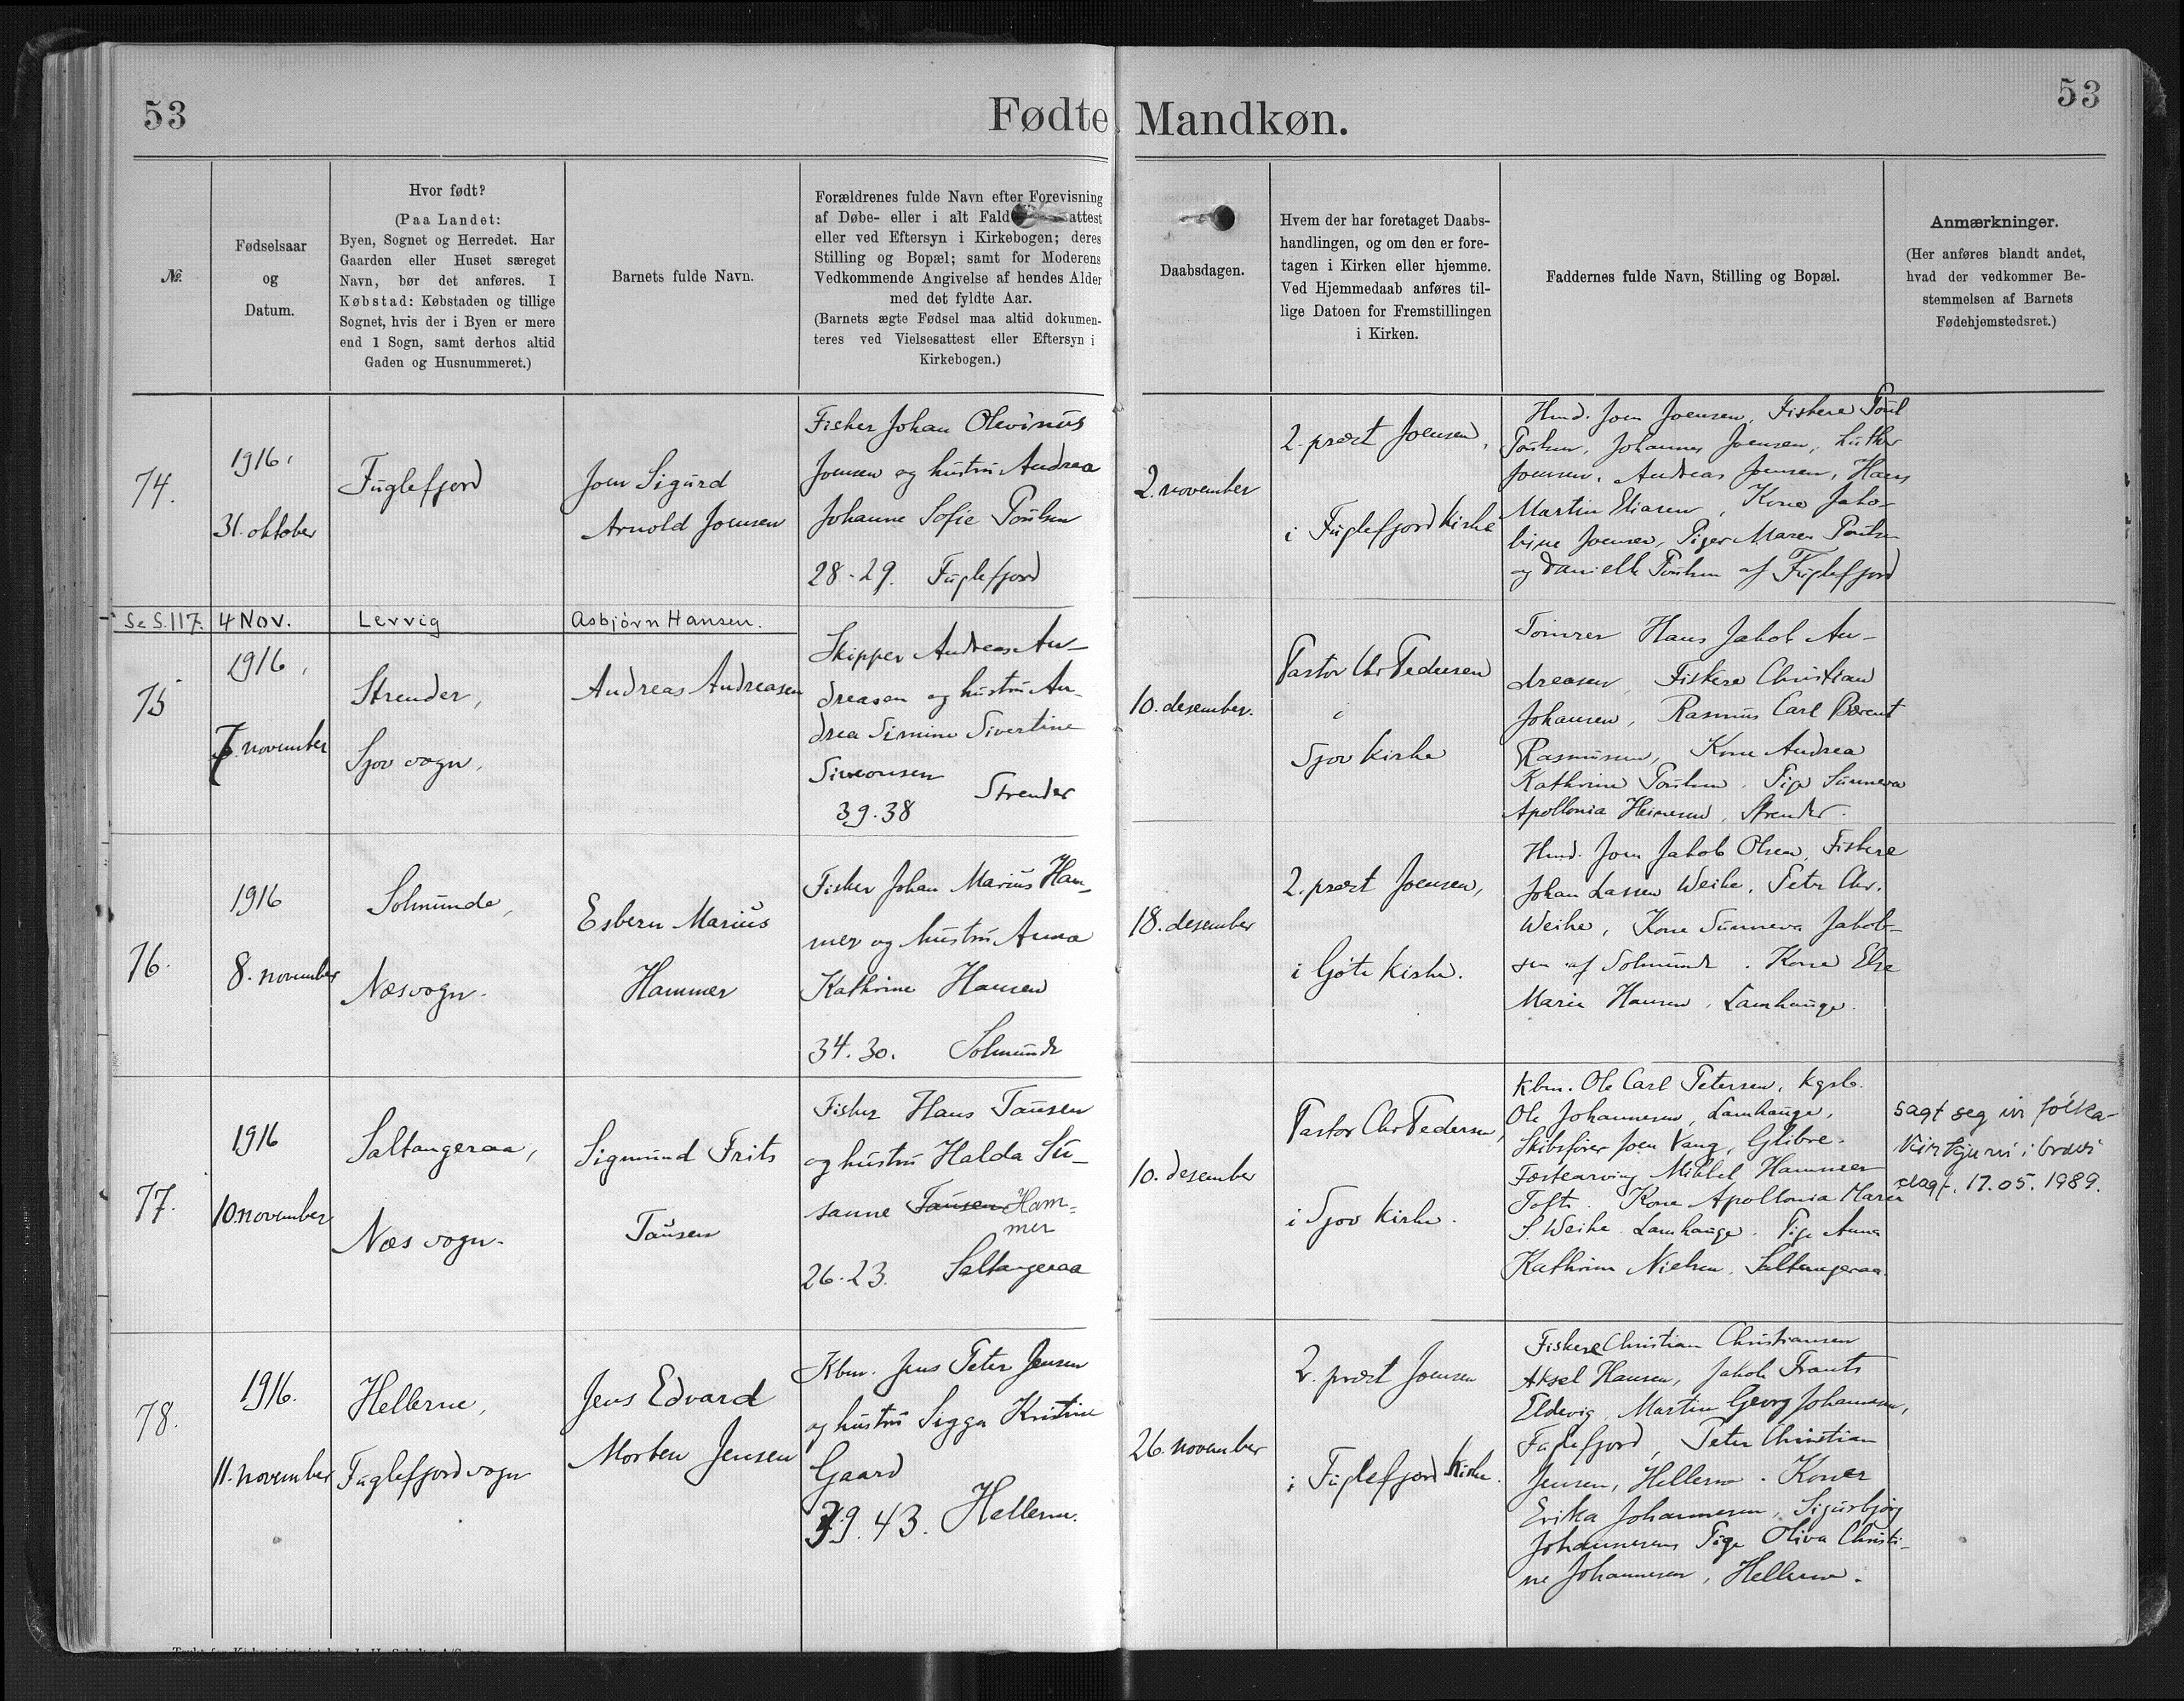 53
Fødte Mandkøn.
53
№
Fødselsaar
og
Datum.
Hvor født?
(Paa Landet:
Byen, Sognet og Herredet. Har
Gaarden eller Huset særeget
Navn, bør det anføres. I
Købstad: Købstaden og tillige
Sognet, hvis der i Byen er mere
end 1 Sogn, samt derhos altid
Gaden og Husnummeret.)
Barnets fulde Navn.
Forældrenes fulde Navn efter Forevisning
af Døbe- eller i alt Fald attest
eller ved Eftersyn i Kirkebogen; deres
Stilling og Bopæl; samt for Moderens
Vedkommende Angivelse af hendes Alder
med det fyldte Aar.
(Barnets ægte Fødsel maa altid dokumen-
teres ved Vielsesattest eller Eftersyn i
Kirkebogen.)
Daabsdagen.
Hvem der har foretaget Daabs-
handlingen, og om den er fore-
tagen i Kirken eller hjemme.
Ved Hjemmedaab anføres til-
lige Datoen for Fremstillingen
i Kirken.
Faddernes fulde Navn, Stilling og Bopæl.
Anmærkninger.
(Her anføres blandt andet,
hvad der vedkommer Be-
stemmelsen af Barnets
Fødehjemstedsret.)
74.
1916,
31. oktober
Fuglefjord
Joen Sigurd
Arnold Joensen
Fisker Johan Olevinus
Joensen og hustru Andrea
Johanne Sofie Poulsen
28-29. Fuglefjord
2. november
2. præst Joensen,
i Fuglefjord kirke
Hmd. Joen Joensen, Fiskere Poul
Poulsen, Johannes Joensen, Luther
Joensen, Andreas Joensen, Hans
Martin Eliasen, Kone Jako-
bine Joensen, Piger Maren Poulsen
og Danielle Poulsen af Fuglefjord
Se S.117.
4 Nov.
Lervig
Asbjørn Hansen.
75
1916,
7. november
Strender,
Sjov sogn,
Andreas Andreasen
Skipper Andreas An-
dreasen og hustru An-
drea Simine Sivertine
Simonsen
39.38 Strender
10. desember.
Pastor Chr Pedersen
i
Sjov kirke
Tømrer Hans Jakob An-
dreasen, Fiskere Christian
Johansen, Rasmus Carl Bærent
Rasmussen, Kone Andrea
Kathrine Poulsen, Pige Sunneva
Apollonia Heinesen, Strender.
76.
1916
8. november
Solmunde,
Næs sogn.
Esbern Marius
Hammer
Fisker Johan Marius Ham-
mer og hustru Anna
Kathrine Hansen
34.30. Solmunde
18. desember
2. præst Joensen,
i Gøte kirke.
Hmd. Joen Jakob Olsen, Fiskere
Johan Lassen Weihe, Peter Chr.
Weihe, Kone Sunneva Jakob-
sen af Solmunde. Kone Else
Marie Hansen, Lamhauge.
77.
1916
10. november
Saltangeraa,
Næs sogn.
Sigmund Frits
Tausen
Fisker Hans Tausen
og hustru Halda Su-
sanne Tausen Ham-
mer
26.23. Saltangeraa
10. desember
Pastor Chr Pedersen,
i Sjov kirke.
Kbm. Ole Carl Petersen, Kgsb.
Ole Johannesen, Lamhauge,
Skibsfører Joen Vang, Glibre.
Fæstearving Mikkel Hammer
Toft. Kone Apollonia Maria
S. Weihe. Lamhauge. Pige Anna
Kathrine Nielsen, Saltangeraa.
sagt seg úr fólka-
kirkjuni í brævi
dagf. 17.05.1989.
78.
1916.
11. november
Hellerne,
Fuglefjord sogn
Jens Edvard
Morten Jensen
Kbm. Jens Peter Jensen
og hustru Sigga Kristine
Gaard
39.43. Hellerne.
26. november
2. præst Joensen
i Fuglefjord kirke.
Fiskere Christian Christiansen
Aksel Hansen, Jakob Frants
Eldevig, Martin Georg Johannesen,
Fuglefjord, Peter Christian
Jensen, Hellerne. Koner
Erika Johannesen, Sigurbjørg
Johannesens Pige Oliva Christi-
ne Johannesen, Hellerne.